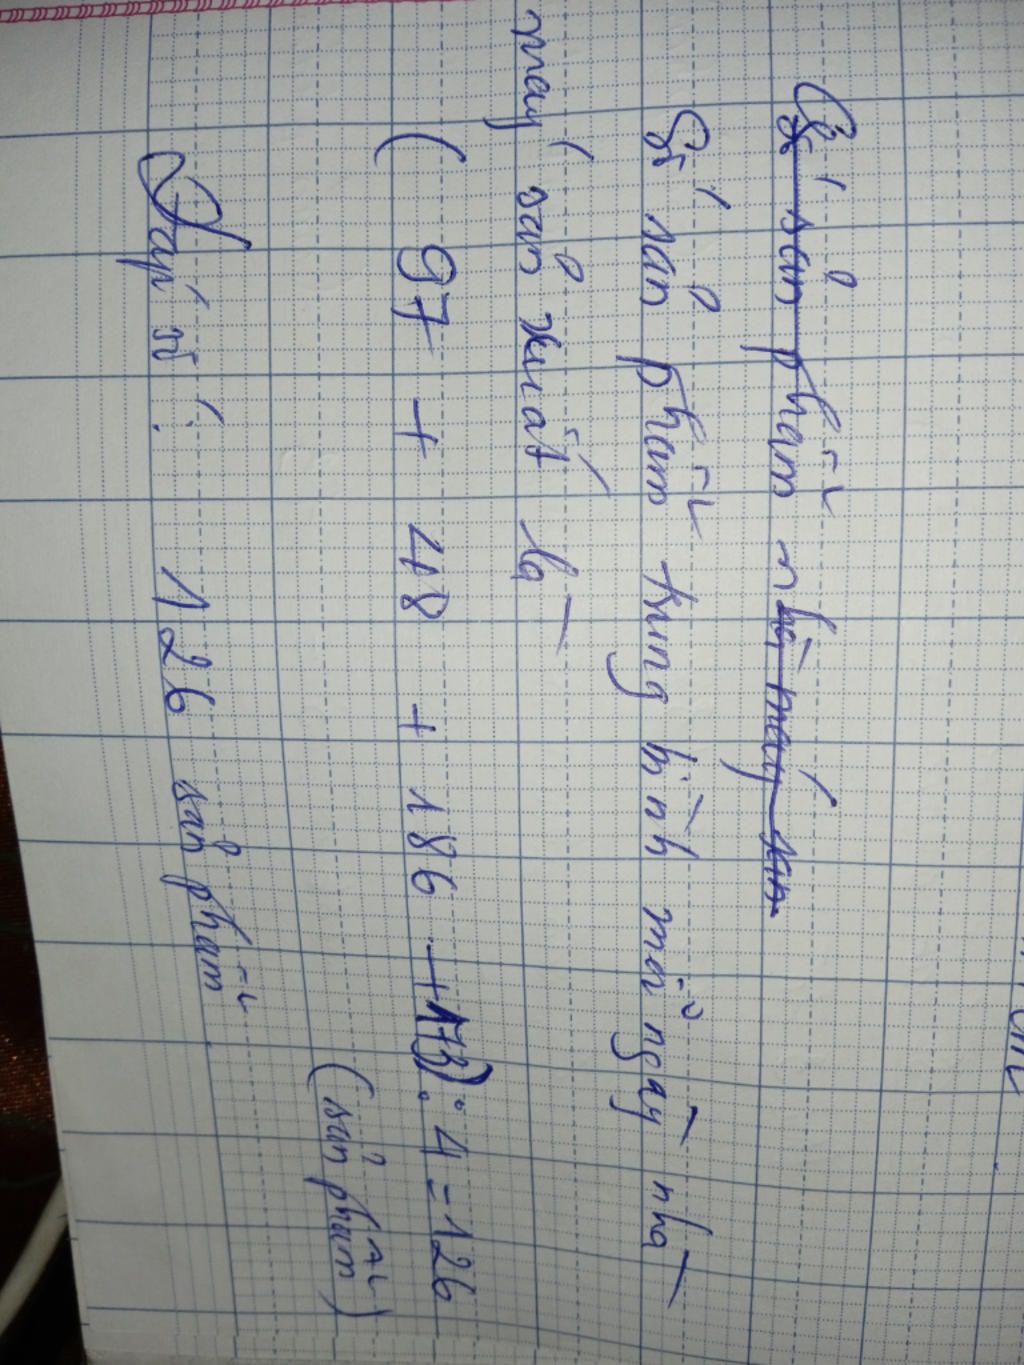 Số sản phẩm nhà máy sản
Số sản phẩm trung bình mỗi ngày nhà
máy sản xuất là
( 97 + 48 + 186 + 173) : 4 = 126
(sản phẩm)
Đáp số : 126 sản phẩm